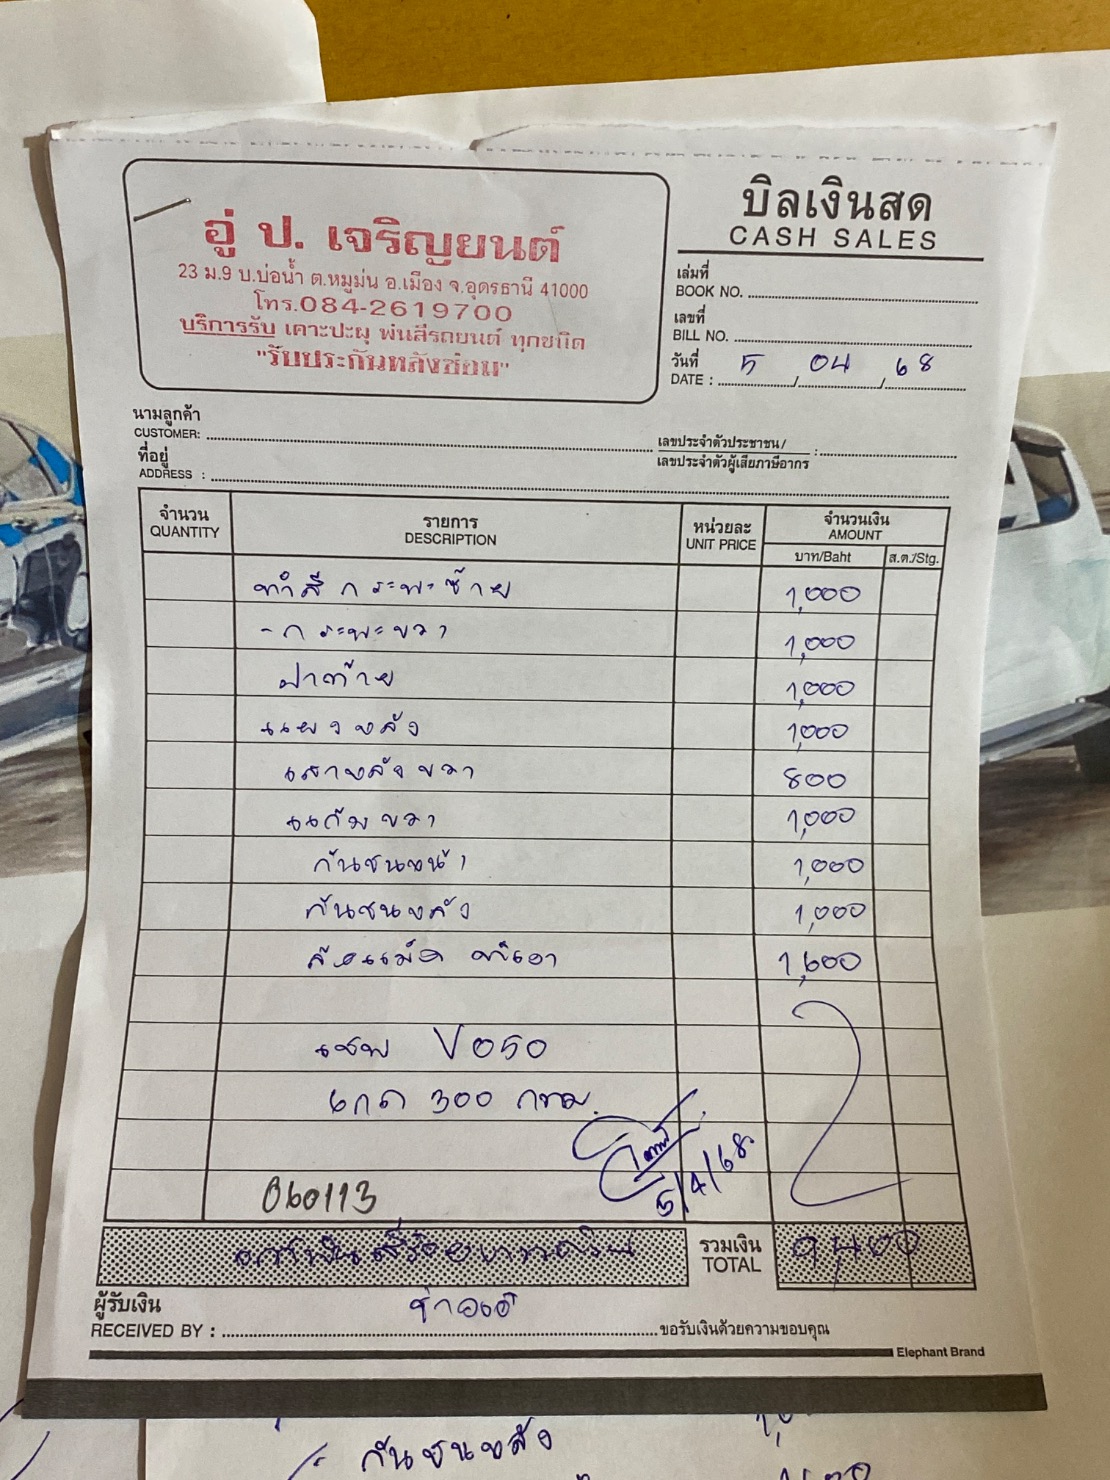 บิลเงินสด
CASH SALES
อู่ ป. เจริญยนต์
23 ม.9 บ.บ่อน้ำ ต.หมูม่น อ.เมือง จ.อุดรธานี 41000
โทร.084-2619700
บริการรับ เคาะปะผุ พ่นสีรถยนต์ ทุกชนิด
"รับประกันหลังซ่อม"
เล่มที่
BOOK NO.
เลขที่
BILL NO.
วันที่
DATE : 5 / 04 / 68
นามลูกค้า
CUSTOMER:
เลขประจำตัวประชาชน/
เลขประจำตัวผู้เสียภาษีอากร :
ที่อยู่
ADDRESS :
จำนวน รายการ หน่วยละ จำนวนเงิน
QUANTITY DESCRIPTION UNIT PRICE AMOUNT
บาท/Baht ส.ต./Stg.
ทำสี กระพะซ้าย 1,000
- กระพะขวา 1,000
ฝาท้าย 1,000
แผงหลัง 1,000
เสาหลังขวา 800
แก้มขวา 1,000
กันชนหน้า 1,000
กันชนหลัง 1,000
1,600
เชพ V050
300 กทม.
5/4/68
060113
เก้าพันสี่ร้อยบาทถ้วน รวมเงิน 9,400
TOTAL
ผู้รับเงิน
RECEIVED BY : ขอรับเงินด้วยความขอบคุณ
Elephant Brand
กันชนหลัง